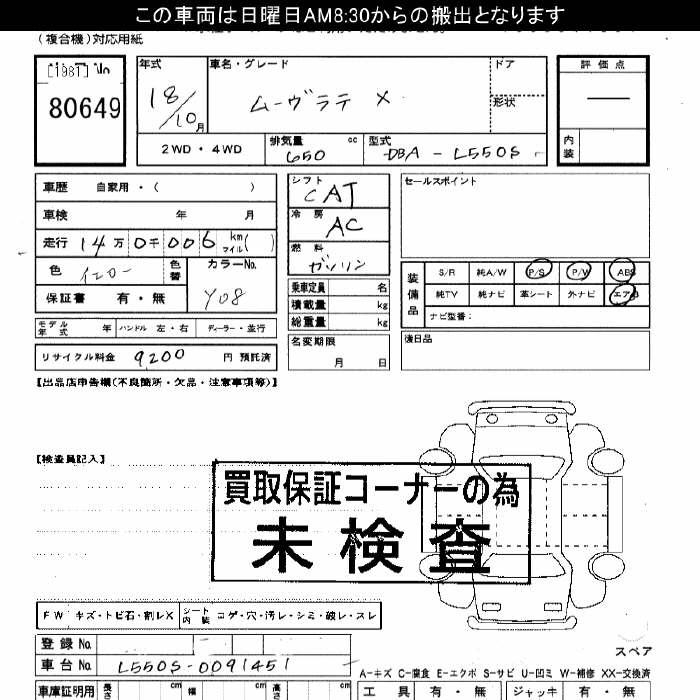 この車両は日曜日AM8:30からの搬出となります
(複合機)対応用紙
[1987] No
80649
年式
18/10月
車名・グレード
ムーヴラテ X
ドア
形状
2WD・4WD
排気量
650 cc
型式
DBA - L550S
評価点
内装
車歴 自家用・( )
車検 年 月
走行 14万0千006 km マイル( )
色 イエロー 色替
カラーNo.
Y08
保証書 有・無
モデル年式 年 ハンドル 左・右 ディーラー・並行
リサイクル料金 9200 円 預託済
シフト
CAT
冷房
AC
燃料
ガソリン
乗車定員 名
積載量 kg
総重量 kg
名変期限
月 日
セールスポイント
装備品
S/R 純A/W P/S P/W ABS
純TV 純ナビ 革シート 外ナビ エアB
ナビ型番:
後日品
【出品店申告欄(不良箇所・欠品・注意事項等)】
【検査員記入】
買取保証コーナーの為
未検査
FW キズ・トビ石・割レX
シート内装 コゲ・穴・汚レ・シミ・破レ・スレ
登録No.
車台No. L550S-0091451
車庫証明用 長さ cm 幅 cm 高さ cm
スペア
A-キズ C-腐食 E-エクボ S-サビ U-凹ミ W-補修 XX-交換済
工具 有・無 ジャッキ 有・無